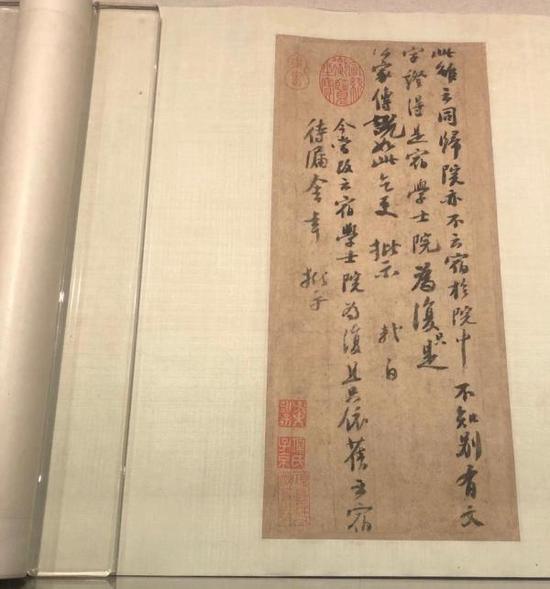 此雖云同歸院亦不云宿於院中不知別有文
字證得是宿學士院為復只是
家傳說如此乞更批示 軾白
今當改云宿學士院為復且只依舊云宿
待漏舍幸 批示